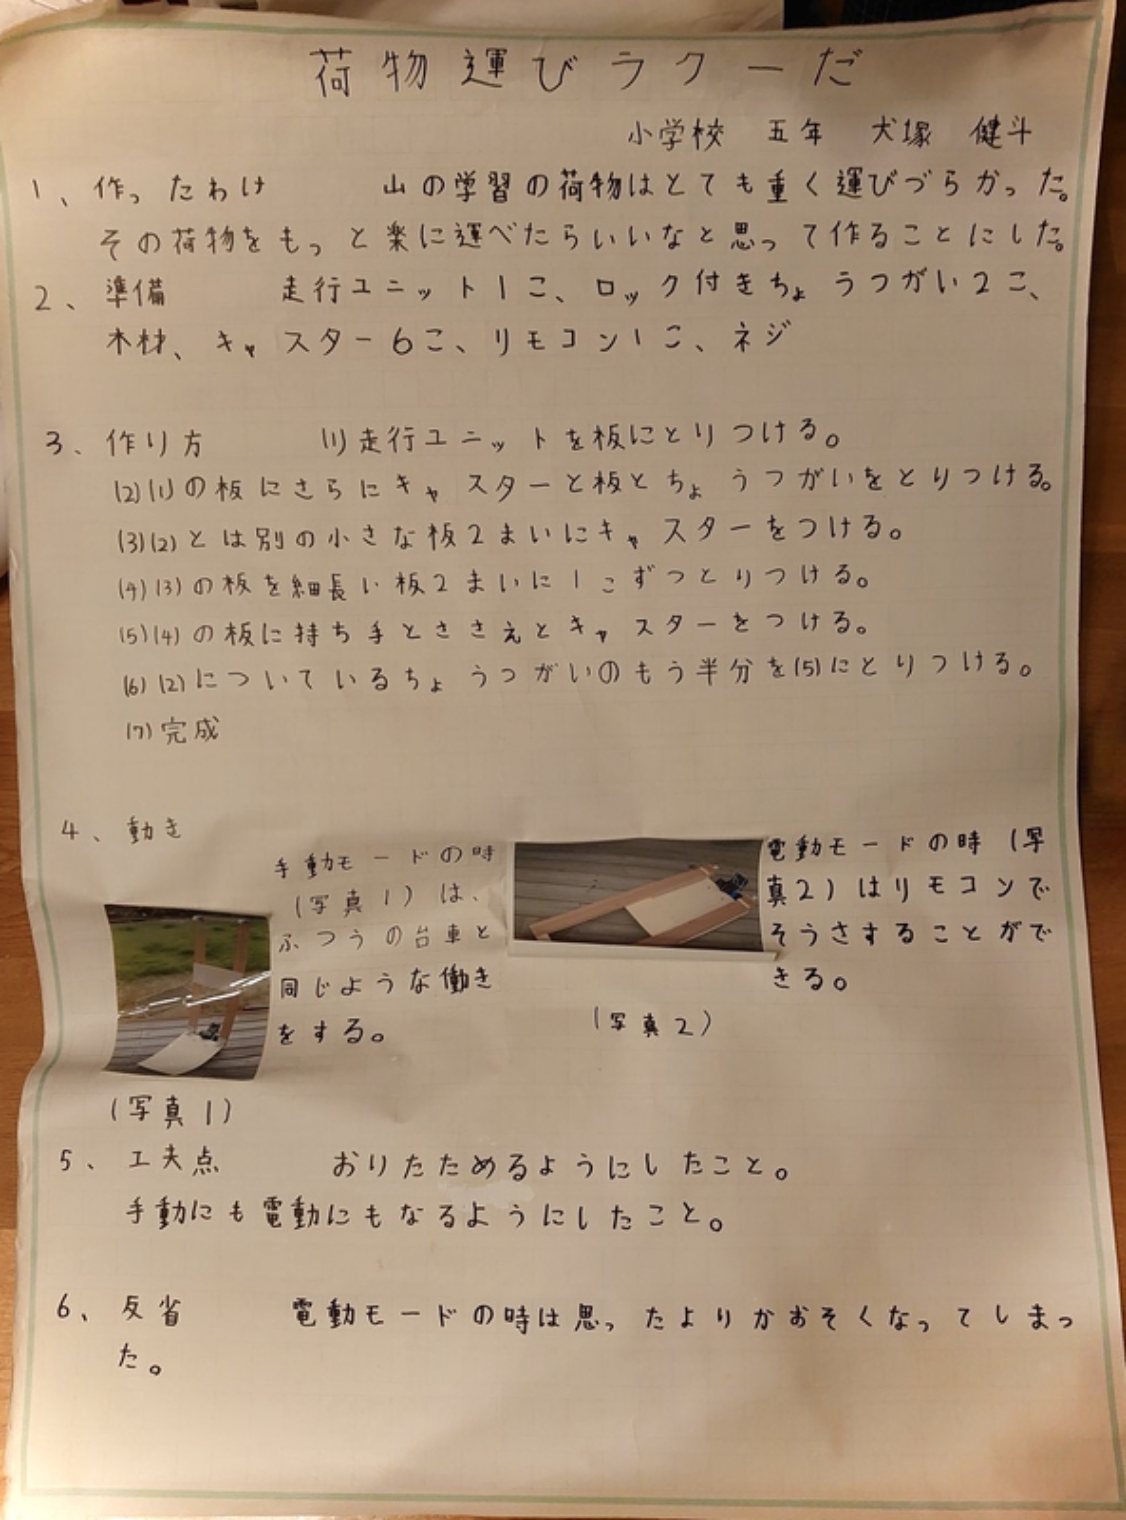 荷物運びラクーだ
小学校 五年 犬塚 健斗
1、作ったわけ 山の学習の荷物はとても重く運びづらかった。
その荷物をもっと楽に運べたらいいなと思って作ることにした。
2、準備 走行ユニット1こ、ロック付きちょうつがい2こ、
木材、キャスター6こ、リモコン1こ、ネジ
3、作り方 (1)走行ユニットを板にとりつける。
(2)(1)の板にさらにキャスターと板とちょうつがいをとりつける。
(3)(2)とは別の小さな板2まいにキャスターをつける。
(4)(3)の板を細長い板2まいに1こずつとりつける。
(5)(4)の板に持ち手とささえとキャスターをつける。
(6)(2)についているちょうつがいのもう半分を(5)にとりつける。
(7)完成
4、動き
手動モードの時
(写真1)は、
ふつうの台車と
同じような働き
をする。
(写真1)
電動モードの時(写
真2)はリモコンで
そうさすることがで
きる。
(写真2)
5、工夫点 おりたためるようにしたこと。
手動にも電動にもなるようにしたこと。
6、反省 電動モードの時は思ったよりかおそくなってしまっ
た。